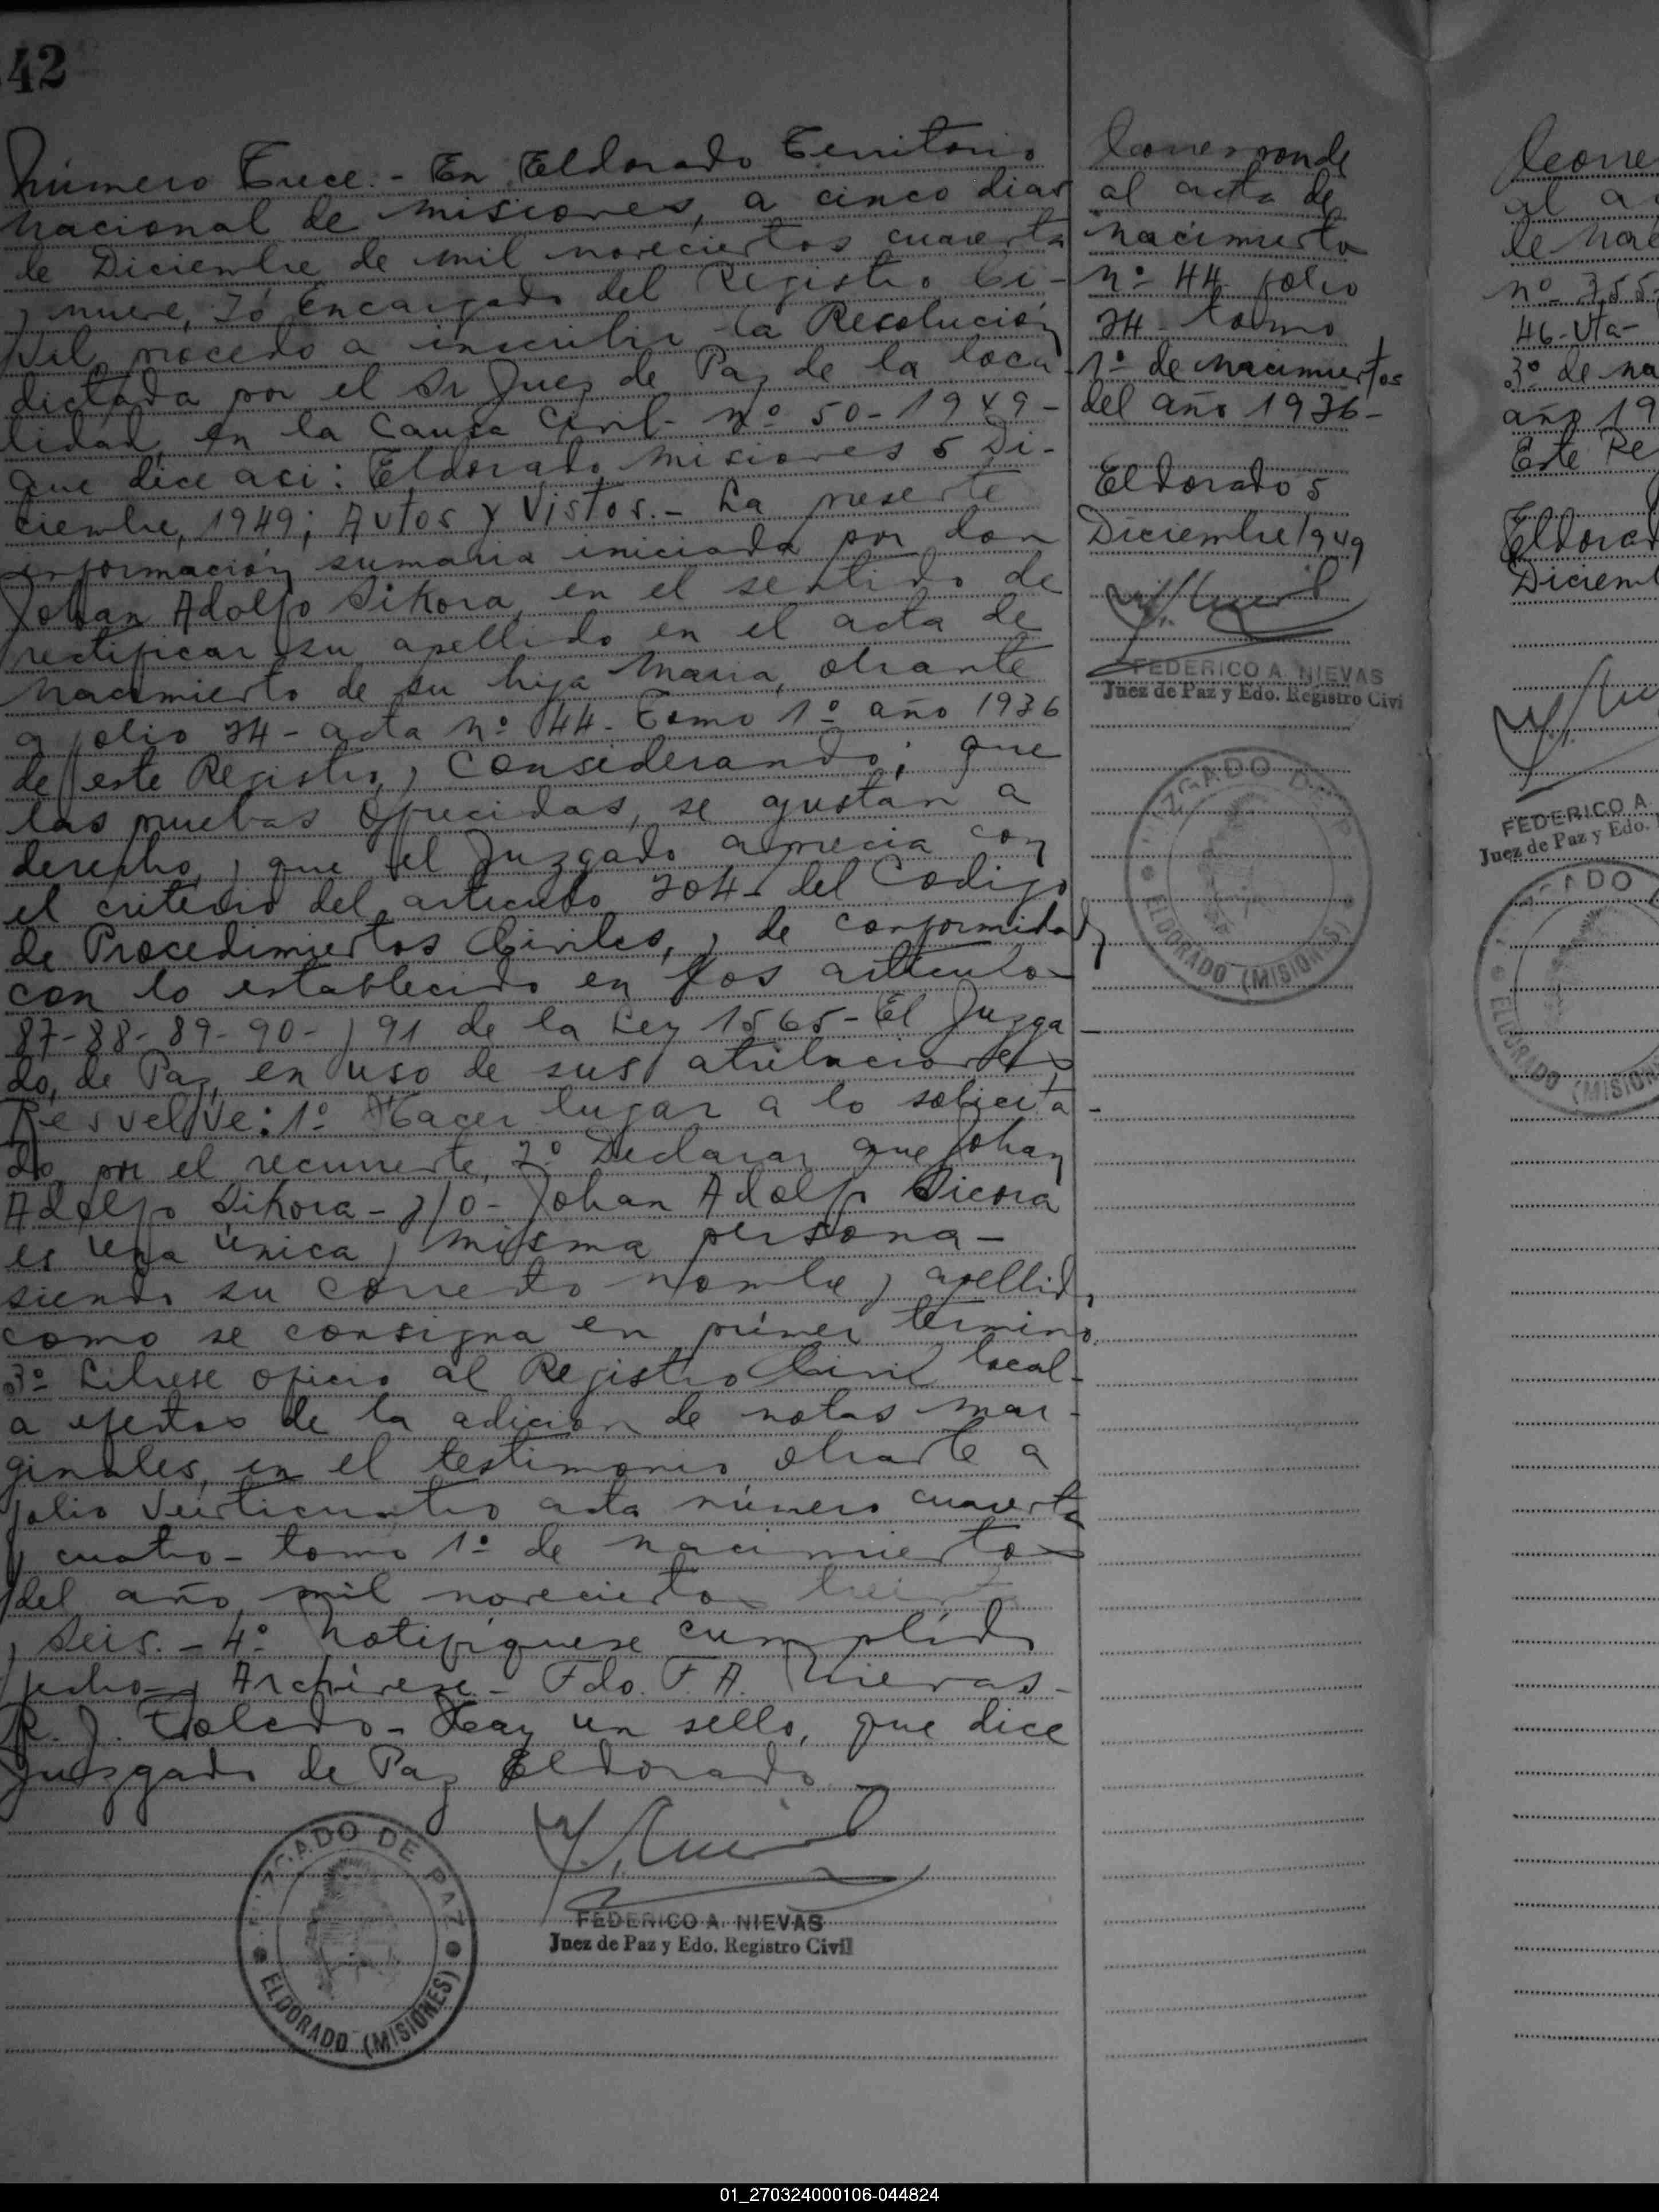 42
Número Trece.- En Eldorado Territorio
Nacional de Misiones, a cinco dias
de Diciembre de mil novecientos cuarenta
y nueve, Yó Encargado del Registro Ci-
vil, procedo a inscribir la Resolución
dictada por el Sr Juez de Paz de la loca-
lidad, en la Causa Civil- nº 50-1949-
que dice aci: Eldorado, Misiones 5 Di-
ciembre, 1949; Autos y Vistos.- La presente
información sumaria iniciada por don
Johan Adolfo Sikora, en el sentido de
rectificar su apellido en el acta de
nacimiento de su hija Maria, obrante
a folio 24- acta nº 44- Tomo 1º año 1936
de este Registro, y Considerando; que
las pruebas ofrecidas, se gustan a
derecho, y que el Juzgado aprecia con
el criterio del articulo 204- del Codigo
de Procedimientos Civiles, y de conformidad
con lo establecido en los articulos
87-88-89-90- y 91 de la Ley 1565- El Juzga-
do, de Paz, en uso de sus atribuciones
Resuelve: 1º Hacer lugar a lo solicita-
do, por el recurrente, 2º Declarar que Johan
Adolfo Sikora- y/o- Johan Adolfo Sicora
es una única y misma persona-
siendo su correcto nombre y apellido,
como se consigna en primer termino.
3º Librese oficio al Registro Civil local-
a efectos de la adicion de notas mar-
ginales, en el testimonio obrante a
folio veinticuatro acta número cuarenta
y cuatro- tomo 1º de nacimientos
del año mil novecientos treinta
y seis.- 4º Notifiquese cumplido
fecho y Archivese- Fdo. F. A. Nievas-
R. J. Toledo- Hay un sello, que dice
Juzgado de Paz Eldorado-
FEDERICO A. NIEVAS
Juez de Paz y Edo. Registro Civil
JUZGADO DE PAZ
ELDORADO (MISIONES)
Corresponde
al acta de
nacimiento
nº 44 folio
24- tomo
1º de nacimientos
del año 1936-
Eldorado 5
Diciembre 1949
FEDERICO A. NIEVAS
Juez de Paz y Edo. Registro Civi
JUZGADO DE P
ELDORADO (MISIONES)
Corre
al a
de nac
nº 355-
46-vta-
3º de na
año 19
Este Re
Eldorad
Diciemb
FEDERICO A.
Juez de Paz y Edo.
GADO
ELDORADO (MISION
01_270324000106-044824